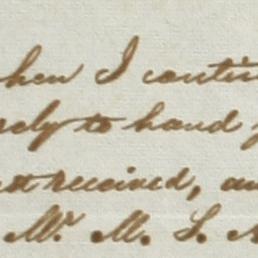 hen I contin
rely to hand
est received, an
Mr. M. S.